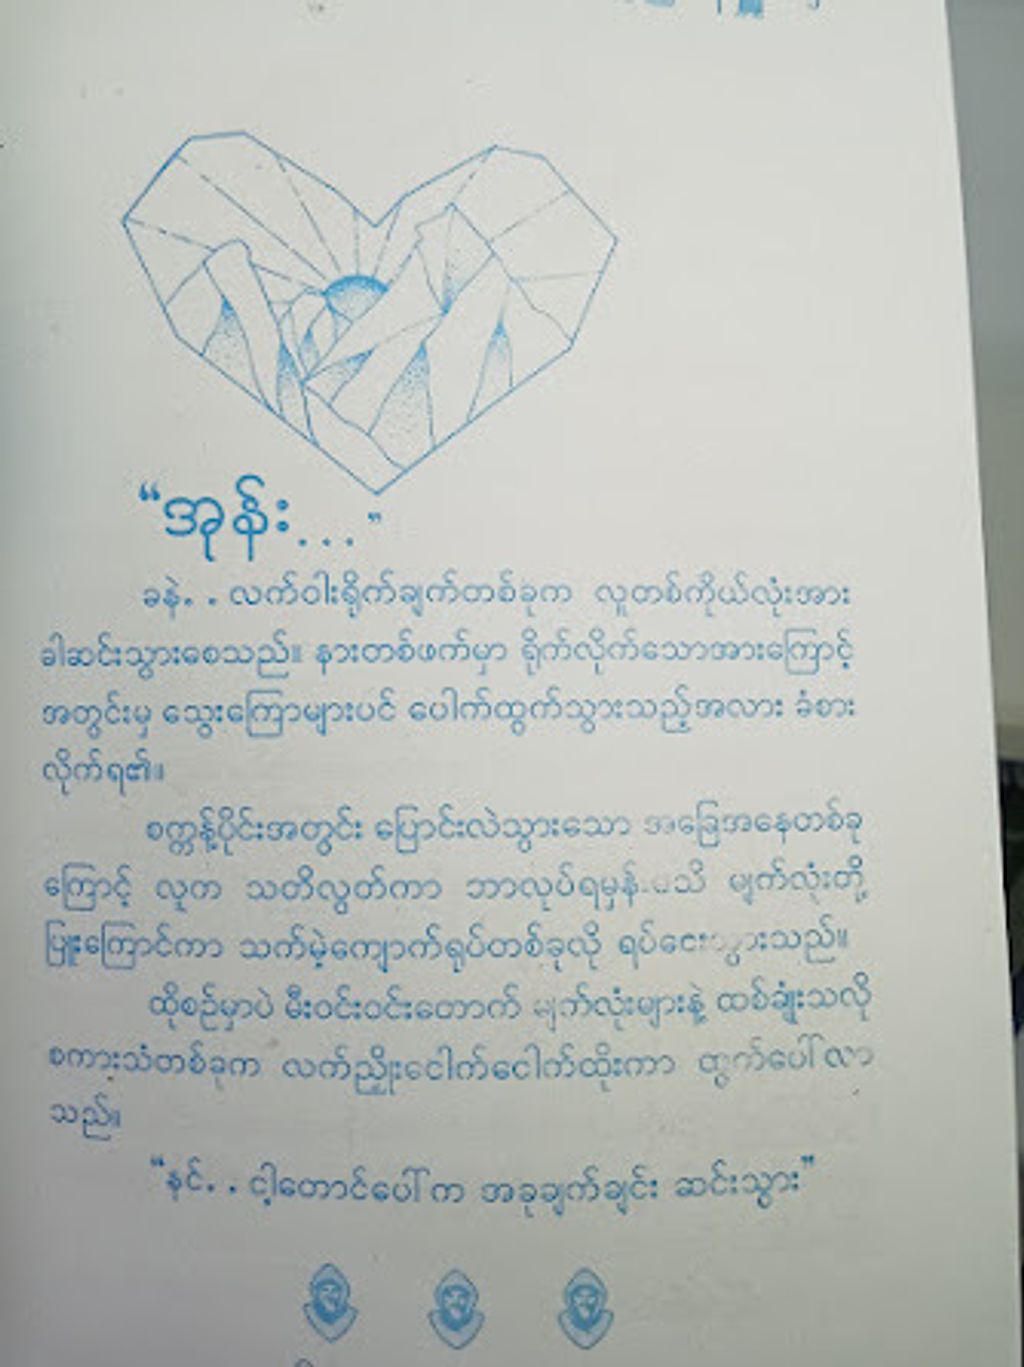 “အုန်း...”
ခနဲ.. လက်ဝါးရိုက်ချက်တစ်ခုက လူတစ်ကိုယ်လုံးအား
ခါဆင်းသွားစေသည်။ နားတစ်ဖက်မှာ ရိုက်လိုက်သောအားကြောင့်
အတွင်းမှ သွေးကြောများပင် ပေါက်ထွက်သွားသည့်အလား ခံစား
လိုက်ရ၏။
စက္ကန့်ပိုင်းအတွင်း ပြောင်းလဲသွားသော အခြေအနေတစ်ခု
ကြောင့် လူက သတိလွတ်ကာ ဘာလုပ်ရမှန်းမသိ မျက်လုံးတို့
ပြူးကြောင်ကာ သက်မဲ့ကျောက်ရုပ်တစ်ခုလို ရပ်ငေးသွားသည်။
ထိုစဉ်မှာပဲ မီးဝင်းဝင်းတောက် မျက်လုံးများနဲ့ ထစ်ချုံးသလို
စကားသံတစ်ခုက လက်ညှိုးငေါက်ငေါက်ထိုးကာ ထွက်ပေါ်လာ
သည်။
“နင်.. ငါ့တောင်ပေါ်က အခုချက်ချင်း ဆင်းသွား”